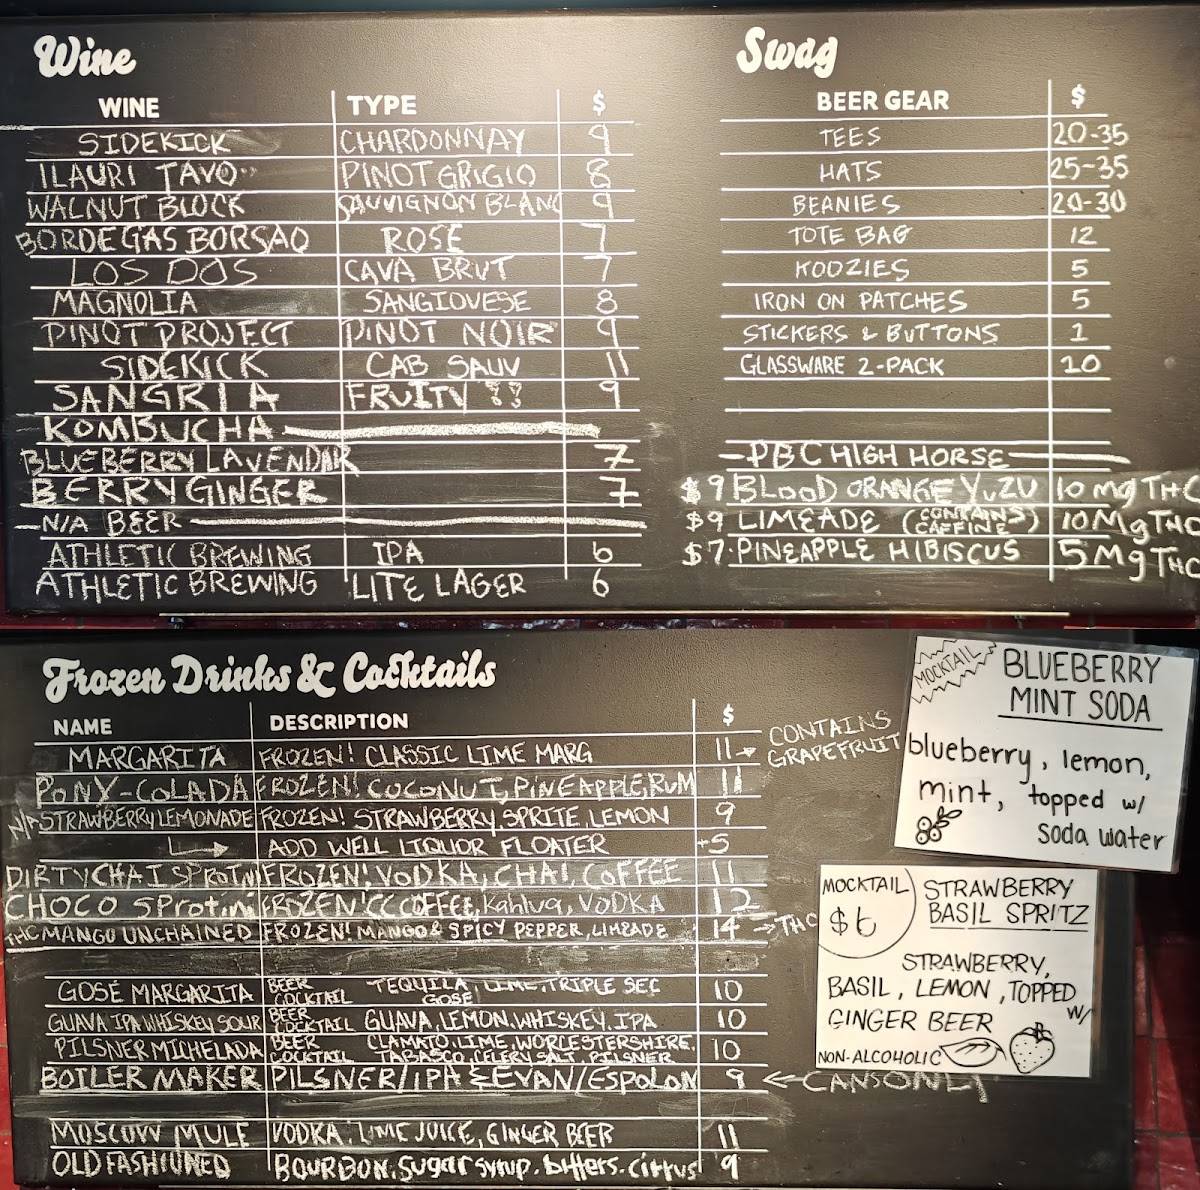 Wine
WINE TYPE $
SIDEKICK CHARDONNAY 9
ILAURI TAVO PINOT GRIGIO 8
WALNUT BLOCK SAUVIGNON BLANC 9
BORDEGAS BORSAO ROSÉ 7
LOS DOS CAVA BRUT 7
MAGNOLIA SANGIOVESE 8
PINOT PROJECT PINOT NOIR 9
SIDEKICK CAB SAUV 11
SANGRIA FRUITY ?? 9
KOMBUCHA
BLUEBERRY LAVENDAR 7
BERRY GINGER 7
N/A BEER
ATHLETIC BREWING IPA 6
ATHLETIC BREWING LITE LAGER 6
Swag
BEER GEAR $
TEES 20-35
HATS 25-35
BEANIES 20-30
TOTE BAG 12
KOOZIES 5
IRON ON PATCHES 5
STICKERS & BUTTONS 1
GLASSWARE 2-PACK 10
—PBC HIGH HORSE—
$9 BLOOD ORANGE YUZU 10mg THC
$9 LIMEADE (CONTAINS CAFFINE) 10Mg THC
$7 PINEAPPLE HIBISCUS 5Mg THC
Frozen Drinks & Cocktails
NAME DESCRIPTION $
MARGARITA FROZEN! CLASSIC LIME MARG 11 → CONTAINS GRAPEFRUIT
PONY-COLADA FROZEN! COCONUT, PINEAPPLE, RUM 11
N/A STRAWBERRY LEMONADE FROZEN! STRAWBERRY, SPRITE, LEMON 9
→ ADD WELL LIQUOR FLOATER +5
DIRTY CHAI SPROTINI FROZEN! VODKA, CHAI, COFFEE 11
CHOCO SProtini FROZEN! CC COFFEE, Kahlua, VODKA 12
THC MANGO UNCHAINED FROZEN! MANGO & SPICY PEPPER, LIMEADE 14 → THC
GOSE MARGARITA BEER COCKTAIL TEQUILA, LIME, TRIPLE SEC GOSE 10
GUAVA IPA WHISKEY SOUR BEER COCKTAIL GUAVA, LEMON, WHISKEY, IPA 10
PILSNER MICHELADA BEER COCKTAIL CLAMATO, LIME, WORCESTERSHIRE, TABASCO, CELERY SALT, PILSNER 10
BOILER MAKER PILSNER/IPA & EVAN/ESPOLON 9 ← CANS ONLY
MOSCOW MULE VODKA, LIME JUICE, GINGER BEER 11
OLD FASHIONED BOURBON, sugar syrup, bitters, citrus 9
MOCKTAIL
BLUEBERRY
MINT SODA
blueberry, lemon,
mint, topped w/
soda water
MOCKTAIL
$6
STRAWBERRY
BASIL SPRITZ
STRAWBERRY,
BASIL, LEMON, TOPPED W/
GINGER BEER
NON-ALCOHOLIC